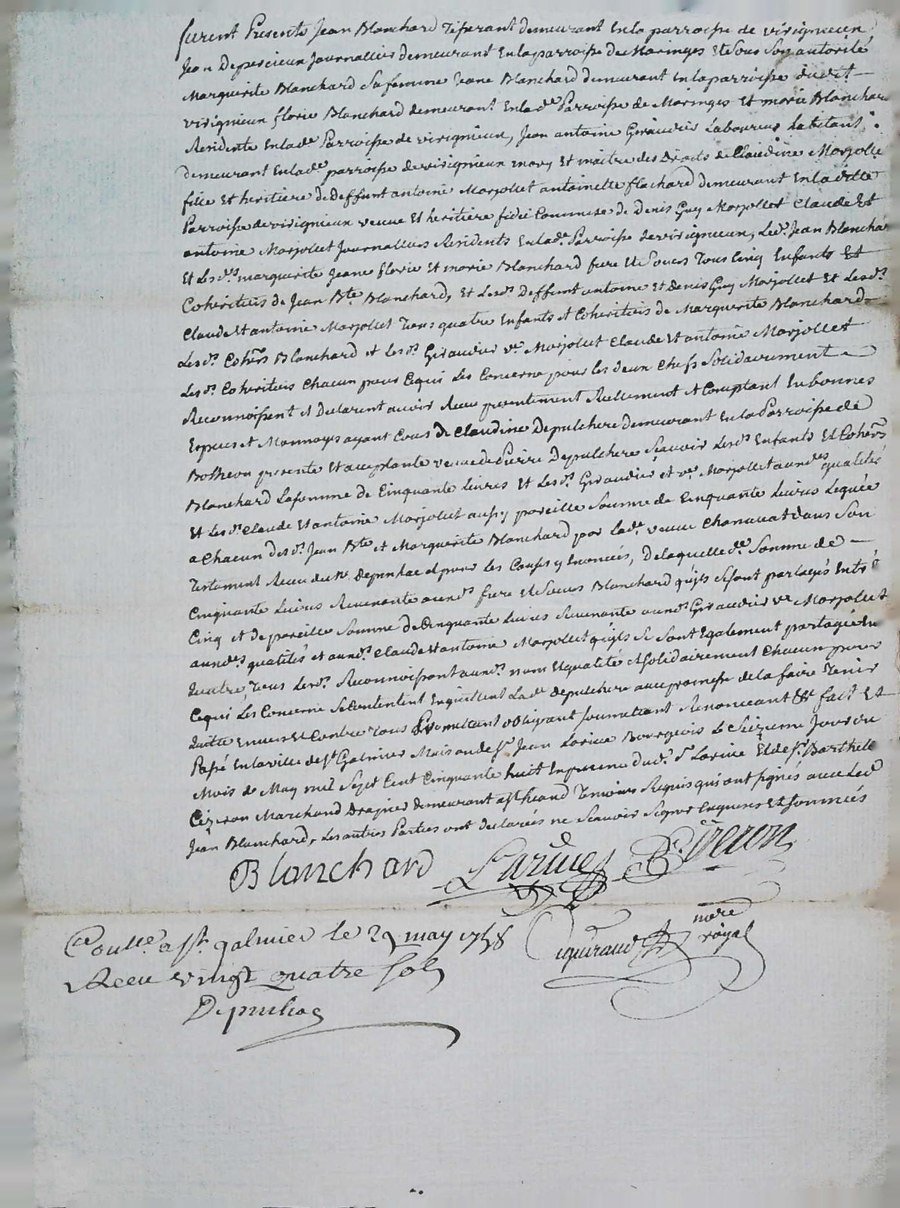 furent Presents Jean Blanchard Tisserant demeurant En la parroisse de virignieux,
Jean Depercieux Journallier demeurant En la parroisse de Maringes Et sous son autorité
Marguerite Blanchard sa femme Jeane Blanchard demeurant En la parroisse dudit
virignieux florie Blanchard demeurant En lade. Parroisse de Maringes Et marie Blanchard
Residente En lade. Parroisse de virignieux, Jean antoine Giraudier Laboureur habitant
demeurant En lade. parroisse de virignieux mary Et maitre des Droits de Claudine Marjollet
fille Et heritiere de deffunt antoine Marjollet antoinette flachard demeurant En la ditte
Parroisse de virignieux veuve Et heritiere fidei Commise de Denis Guy Marjollet Claude Et
antoine Marjollet Journalliers Residents En lade. Parroisse de virignieux, Led. Jean Blanchard
Et Lesdes. marguerite Jeane florie Et marie Blanchard frere Et soeurs Tous Cinq Enfants Et
Coheritiers de Jean Bte Blanchard, Et Lesd. Deffunt antoine Et denis Guy Marjollet Et Lesds.
Claude Et antoine Marjollet Tous quatre Enfants Et Coheritiers de Marguerite Blanchard
Lesds. Cohers. Blanchard et Lesds. Giraudier ve. Marjollet Claude Et antoine Marjollet
Lesds. Coheritiers Chacun pour Ce qui Les Concerne pour les deux Chefs Solidairement
Reconnoissent Et Declarent avoir Receu presentement Reellement Et Comptant En bonnes
Especes et Monnoye ayant Cours de Claudine Depulchere demeurant En la Parroisse de
presente Et acceptante veuve de Pierre Depulchere Scavoir Lesds. Enfants Et Cohers.
Blanchard La somme de Cinquante Livres Et Lesds. Giraudier et ve. Marjollet auxdes. qualités
Et Lesds. Claude Et antoine Marjollet aussy pareille Somme de Cinquante Livres Leguée
a Chacun desds. Jean Bte et Marguerite Blanchard par lade. veuve dans Son
Testament Receu de Me. Depunhac Et pour les Causes y Enoncées, De laquelle de. Somme de
Cinquante Livres Revenante auxds. frere Et Soeurs Blanchard qu'ils se sont partagés Entre
Cinq et de pareille Somme de Cinquante Livres Revenante auxds. Giraudier ve. Marjollet
auxdes. qualités et auxds. Claude Et antoine Marjollet qu'ils Se Sont Egalement partagée En
Quatre, Tous Lesds. Reconnoissants auxds. nom Et qualités Et Solidairement Chacun pour
Ce qui Les Concerne Se Contentent En quittent Lade. depulchere avec promesse de la faire Tenir
Quitte Envers Et Contre Tous Promettant obligeant soumettant Renonceant &c fait Et
Passé En la ville de St Galmier Maison de Sr. Jean Larive Bourgeois Le Seizieme Jour du
Mois de May mil Sept Cent Cinquante huit En presence dud. Sr Larive Et de Sr. Barthel
Cizeron Marchand Drapier demeurant a St heand Temoins Requis qui ont signés avec Led.
Jean Blanchard, Les autres Parties ont declarées ne Scavoir Signer Enquises Et Sommées
Blanchard Larive Cizeron
Siquiraud nore. royal
Conlle. a St. galmier le 29 may 1758
Receu vingt quatre sols
Depunhac